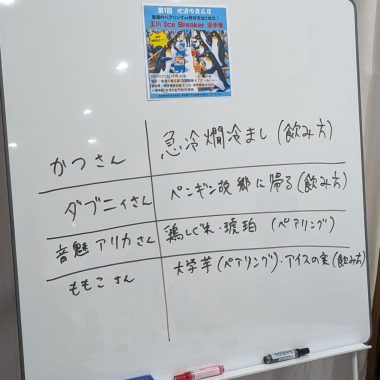 第1回 地酒の星広場
玉川 Ice Breaker 選手権
かつさん 急冷燗冷まし(飲み方)
ダブニィさん ペンギン故郷に帰る(飲み方)
音魅アリカさん 鶏しぐれ・琥珀 (ペアリング)
ももこさん 大学芋(ペアリング)・アイスの実(飲み方)